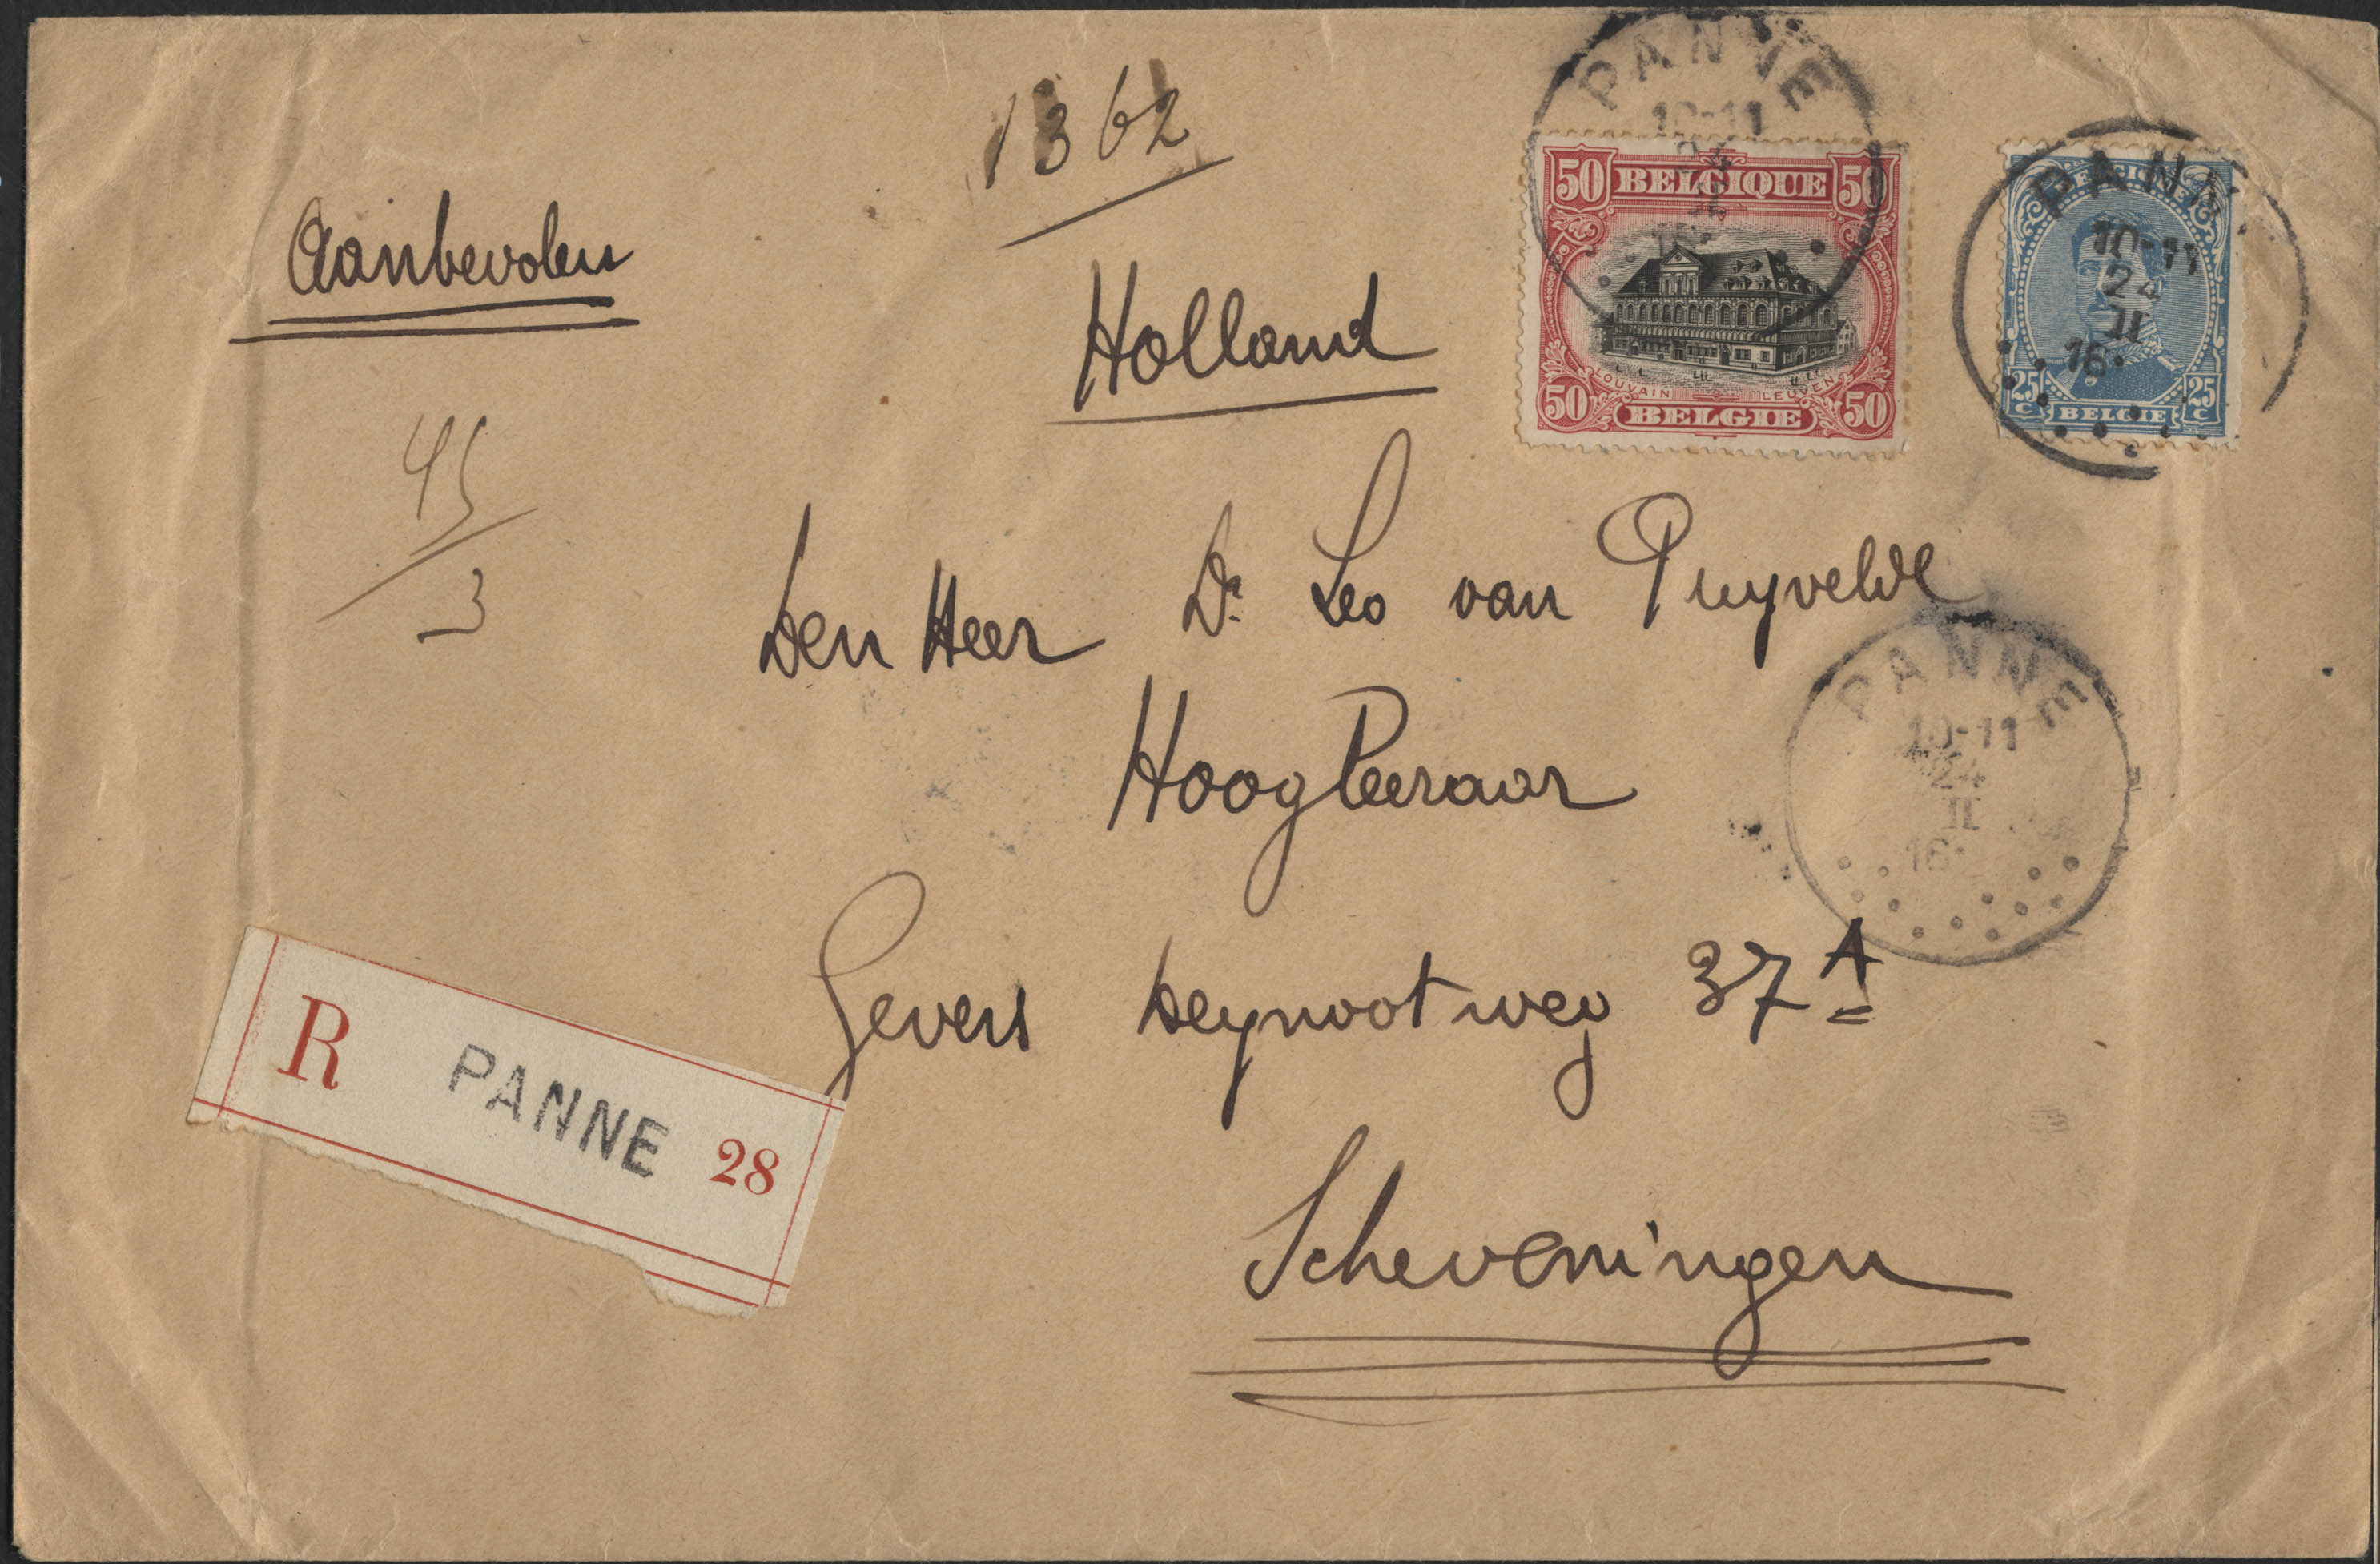 1362
Aanbevolen
Holland
45
3
PANNE
10-11
24
II
16
50 BELGIQUE 50
LOUVAIN LEUVEN
50 BELGIE 50
PANN
10-11
24
II
16
25 c BELGIE 25 c
Den Heer Dr. Leo van Puyvelde
Hoogleeraar
PANNE
10-11
24
II
16
Gevers Deynootweg 37A
R PANNE 28
Scheveningen